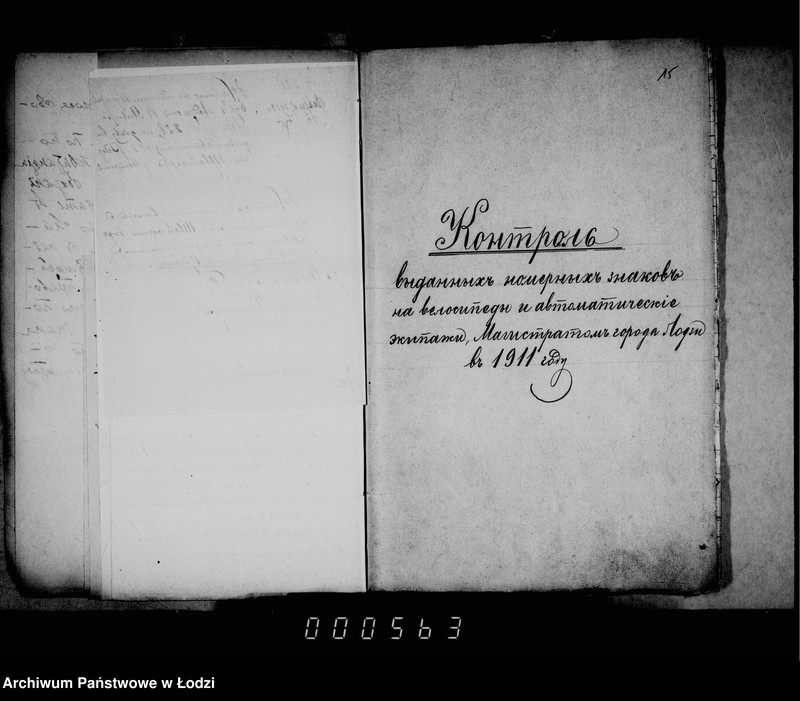 15
Контроль
выданныхъ номерныхъ знаковъ
на велосипеды и автоматическіе
экипажи, Магистратомъ города Лодзи
въ 1911 году
000563
Archiwum Państwowe w Łodzi